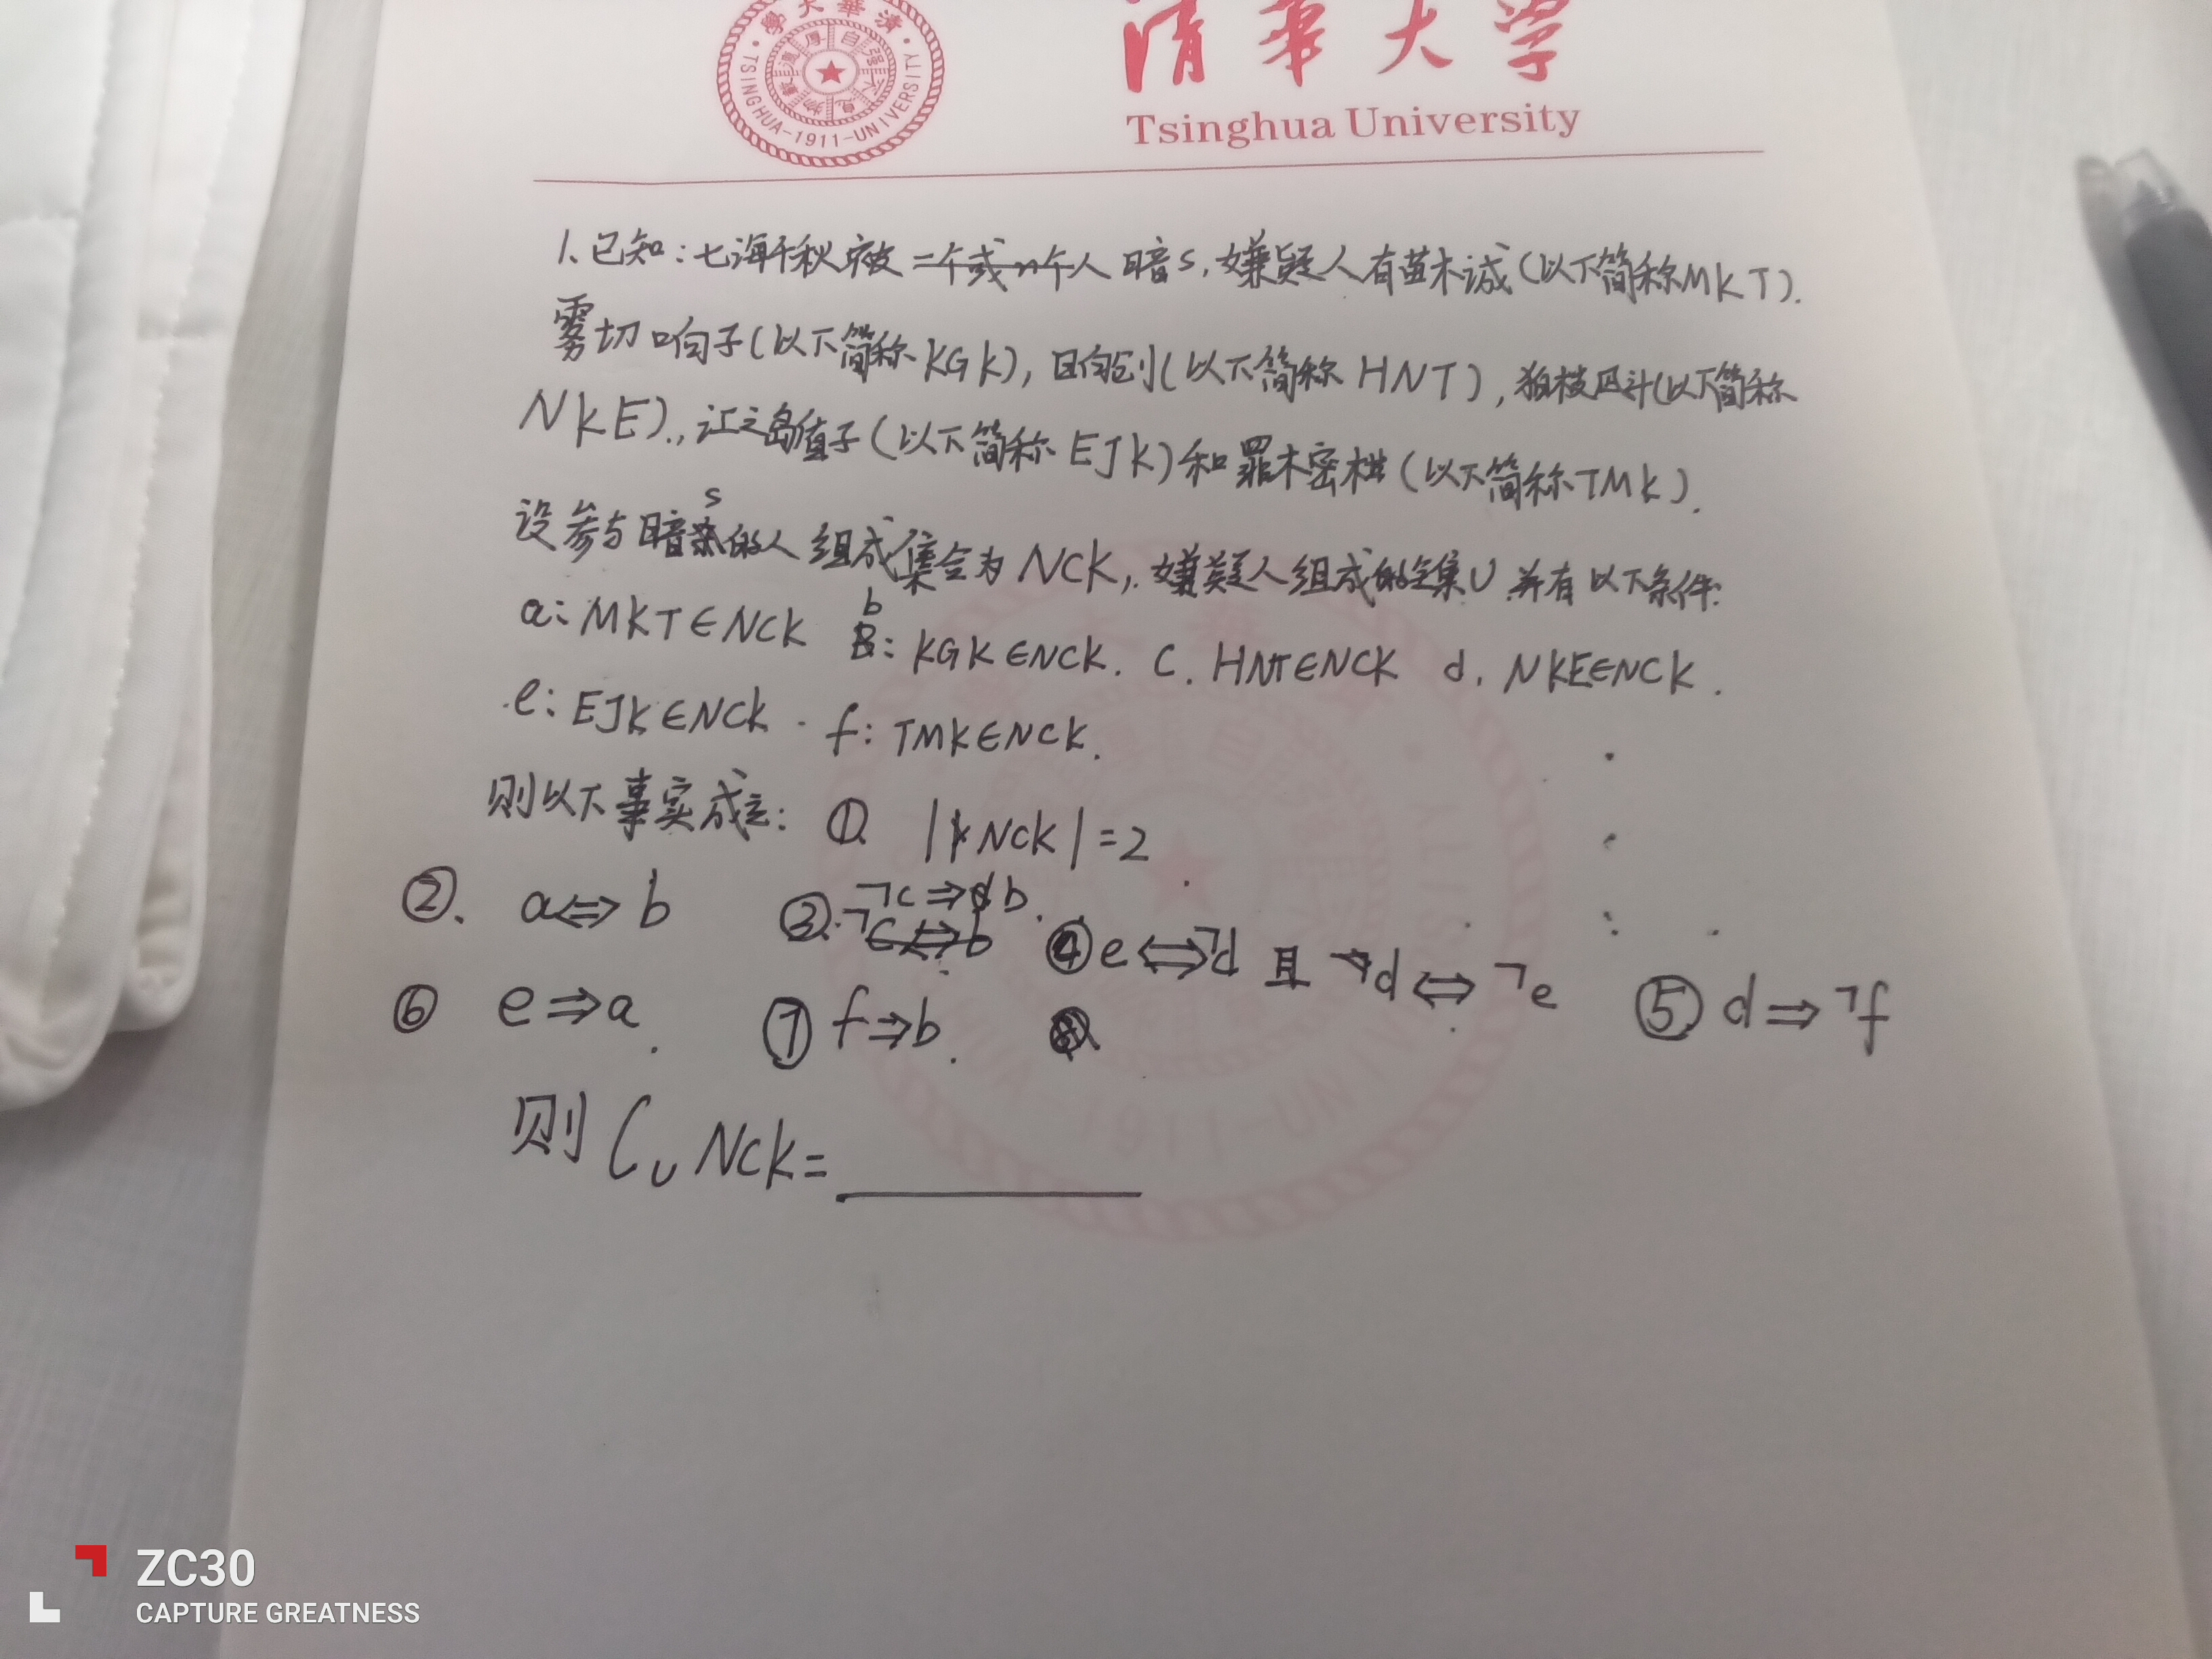 清华大学
Tsinghua University
TSINGHUA-1911-UNIVERSITY
1.已知:七海千秋被一个或n个人暗s,嫌疑人有苗木诚(以下简称MKT).
雾切响子(以下简称KGK),日向创(以下简称HNT),狛枝凪斗(以下简称
NKE).,江之岛盾子(以下简称EJK)和罪木蜜柑(以下简称TMK).
设参与暗s的人组成集合为NCK,.嫌疑人组成的全集U,并有以下条件:
a:MKT∈NCK b:KGK∈NCK. c.HNT∈NCK d.NKE∈NCK.
e:EJK∈NCK. f:TMK∈NCK.
则以下事实成立: ①. |NCK|=2
②. a⇔b ③.¬c⇒b. ④e⇔¬d 且 d⇔¬e ⑤d⇒¬f
⑥ e⇒a. ⑦f⇒b.
则 ∁U NCK=
ZC30
CAPTURE GREATNESS